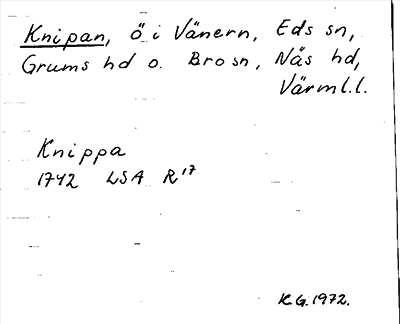 Knipan, ö i Vänern, Eds sn,
Grums hd o. Bro sn, Näs hd,
Värml.l.
Knippa
1742 LSA R17
K.G. 1972.